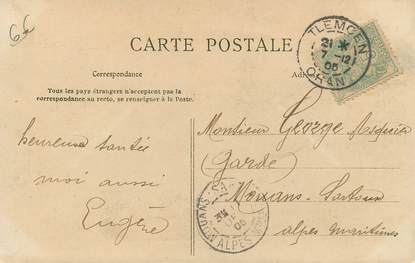 6€
CARTE POSTALE
TLEMCEN
21 *
7 -12
05
ORAN
Correspondance
Adre
Tous les pays étrangers n'acceptent pas la
correspondance au recto, se renseigner à la Poste.
Monsieur George
(Garde)
Mouans-Sartoux
alpes maritimes
heureuse
moi aussi
Eugène
MOUANS-SA
05
ALPES MARIT